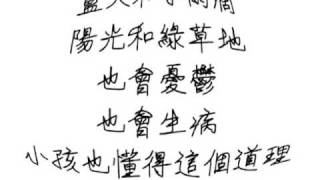 陽光和綠草地
也會憂鬱
也會生病
小孩也懂得這個道理